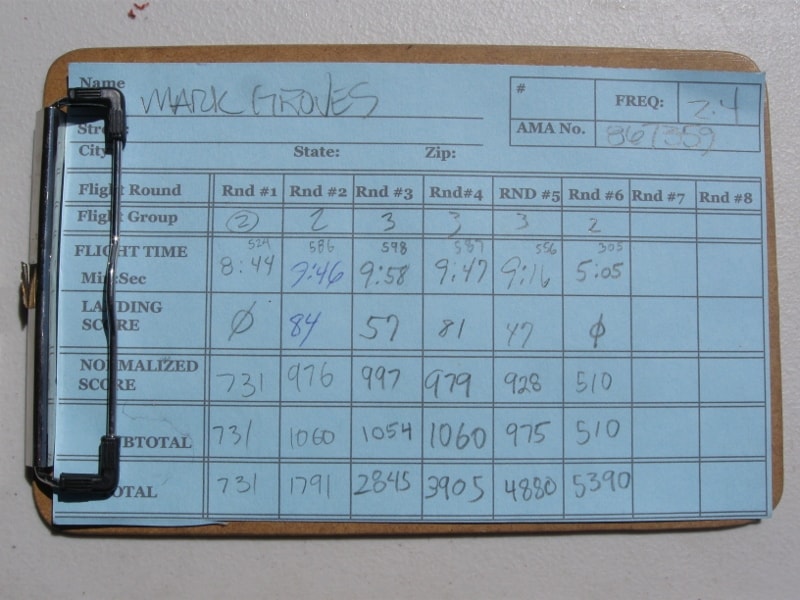 Name MARK GROVES
# FREQ: 2.4
AMA No. 867359
City State: Zip:
Flight Round Rnd #1 Rnd #2 Rnd #3 Rnd#4 RND #5 Rnd #6 Rnd #7 Rnd #8
Flight Group 2 2 3 3 3 2
524 586 598 587 556 305
FLIGHT TIME
Min:Sec 8:44 9:46 9:58 9:47 9:16 5:05
LANDING
SCORE Ø 84 57 81 47 Ø
NORMALIZED
SCORE 731 976 997 979 928 510
UBTOTAL 731 1060 1054 1060 975 510
OTAL 731 1791 2845 3905 4880 5390